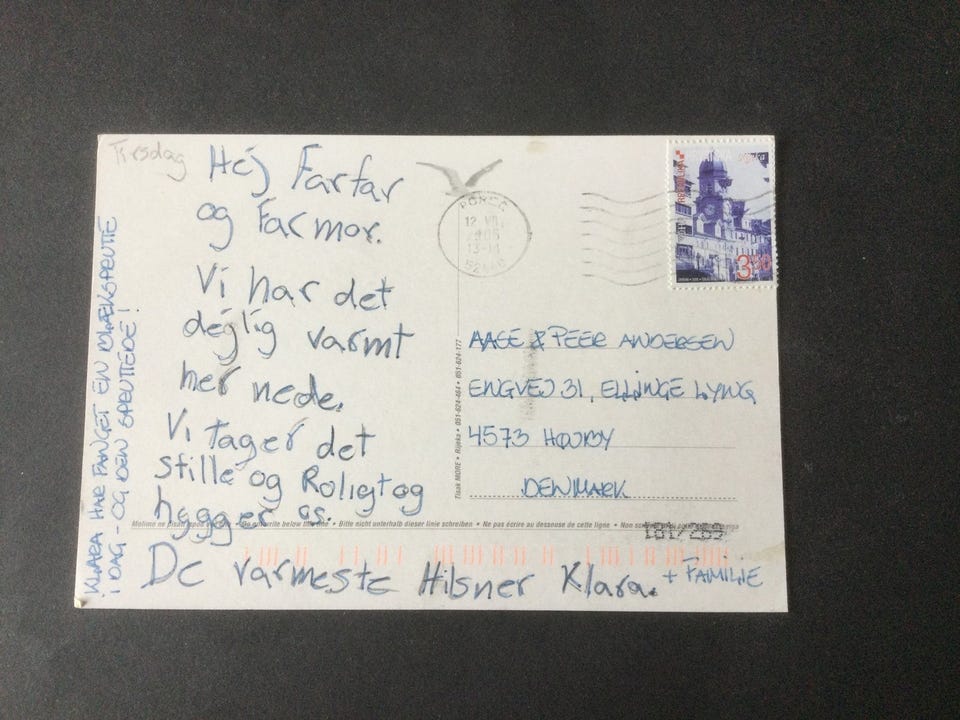 Tirsdag
Hej Farfar
og Farmor.
Vi har det
dejlig varmt
her nede.
Vi tager det
stille og Roligt og
hygger os.
De varmeste Hilsner Klara.
+ FAMILIE
KLARA HAR FANGET EN BLÆKSPRUTTE
i DAG - OG DEN SPRUTTEDE!
POREČ
12 VII
13-
REPUBLIKA
3
AASE & PEER ANDERSEN
ENGVEJ 31, ELLINGE LYNG
4573 HØJBY
DENMARK
Tisak MORE • Rijeka • 051-624-464 • 051-624-177
Molimo ne pisati ispod • Do not write below this line • Bitte nicht unterhalb dieser linie schreiben • Ne pas écrire au dessouse de cette ligne • Non
181/269